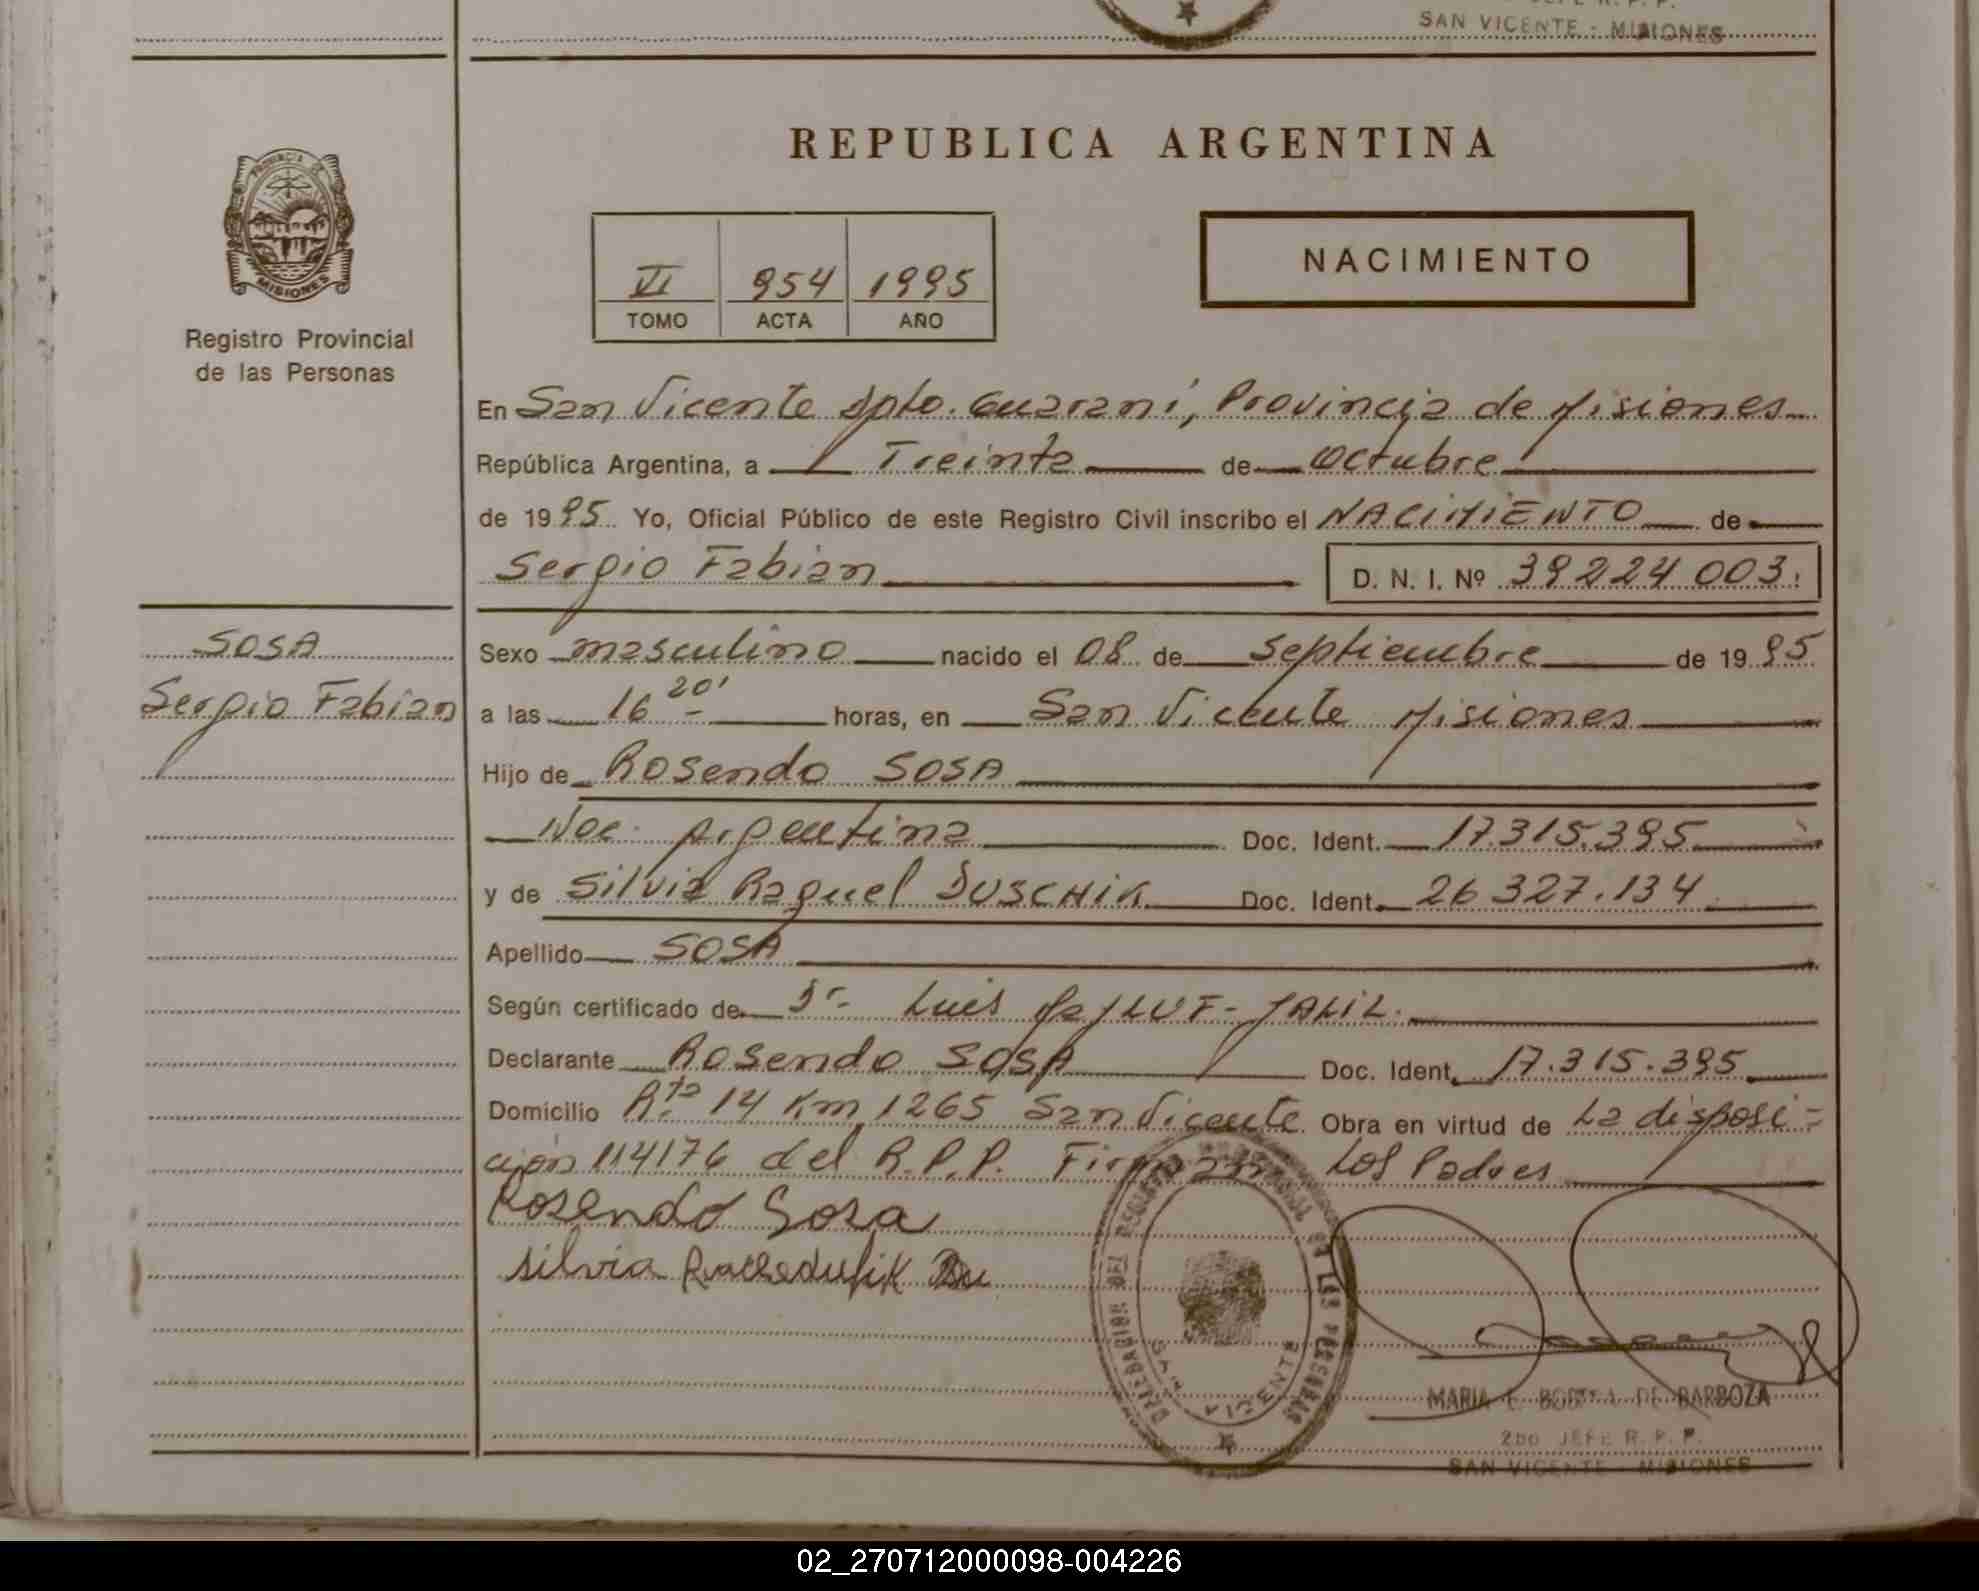 SAN VICENTE - MISIONES
REPUBLICA ARGENTINA
PROVINCIA DE
MISIONES
Registro Provincial
de las Personas
VI 954 1995
TOMO ACTA AÑO
NACIMIENTO
En San Vicente Dpto. Guaraní, Provincia de Misiones
República Argentina, a Treinta de Octubre
de 1995 Yo, Oficial Público de este Registro Civil inscribo el NACIMIENTO de
Sergio Fabian D. N. I. Nº 39224003.
SOSA
Sergio Fabian
Sexo masculino nacido el 08 de Septiembre de 1995
a las 16 20' horas, en San Vicente Misiones
Hijo de Rosendo SOSA
Nac. Argentina Doc. Ident. 17.315.395
y de Silvia Raquel DUSCHIK Doc. Ident. 26327.134
Apellido SOSA
Según certificado de Dr- Luis JALIL.
Declarante Rosendo SOSA Doc. Ident. 17.315.395
Domicilio Rta 14 Km 1265 San Vicente. Obra en virtud de La disposi=
ción 114176 del R.P.P. Firman Los Padres
Rosendo Sosa
silvia
SAN VICENTE
MARIA E. DE BARBOZA
2do JEFE R. P. P.
SAN VICENTE - MISIONES
02_270712000098-004226